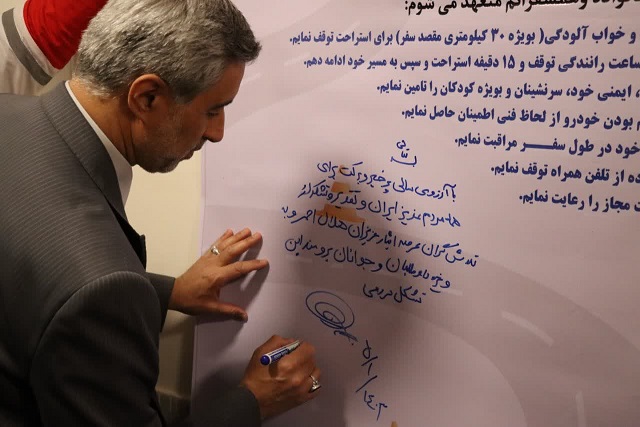 متعهد می شوم:
و خواب آلودگی( بویژه ۳۰ کیلومتری مقصد سفر) برای استراحت توقف نمایم.
ساعت رانندگی توقف و ۱۵ دقیقه استراحت و سپس به مسیر خود ادامه دهم.
، ایمنی خود، سرنشینان و بویژه کودکان را تامین نمایم.
م بودن خودرو از لحاظ فنی اطمینان حاصل نمایم.
خود در طول سفر مراقبت نمایم.
ده از تلفن همراه توقف نمایم.
ت مجاز را رعایت نمایم.
با آرزوی سالی پر خیر و برکت برای
مردم عزیز ایران و تقدیر و تشکر از
تلاش گران عرصه ایثار عزیزان هلال احمر و به
ویژه داوطلبان و جوانان برومند این
تشکل مردمی
۵/۱/۱۴۰۳